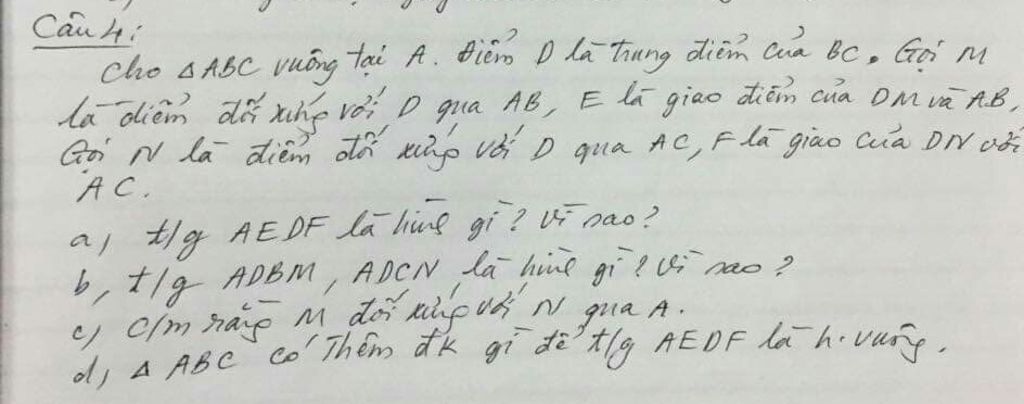 Câu 4:
Cho △ABC vuông tại A. Điểm D là trung điểm của BC. Gọi M
là điểm đối xứng với D qua AB, E là giao điểm của DM và AB,
Gọi N là điểm đối xứng với D qua AC, F là giao của DN với
AC.
a, t/g AEDF là hình gì? Vì sao?
b, t/g ADBM, ADCN là hình gì? Vì sao?
c, C/m rằng M đối xứng với N qua A.
d, △ ABC có thêm đk gì để t/g AEDF là h.vuông.